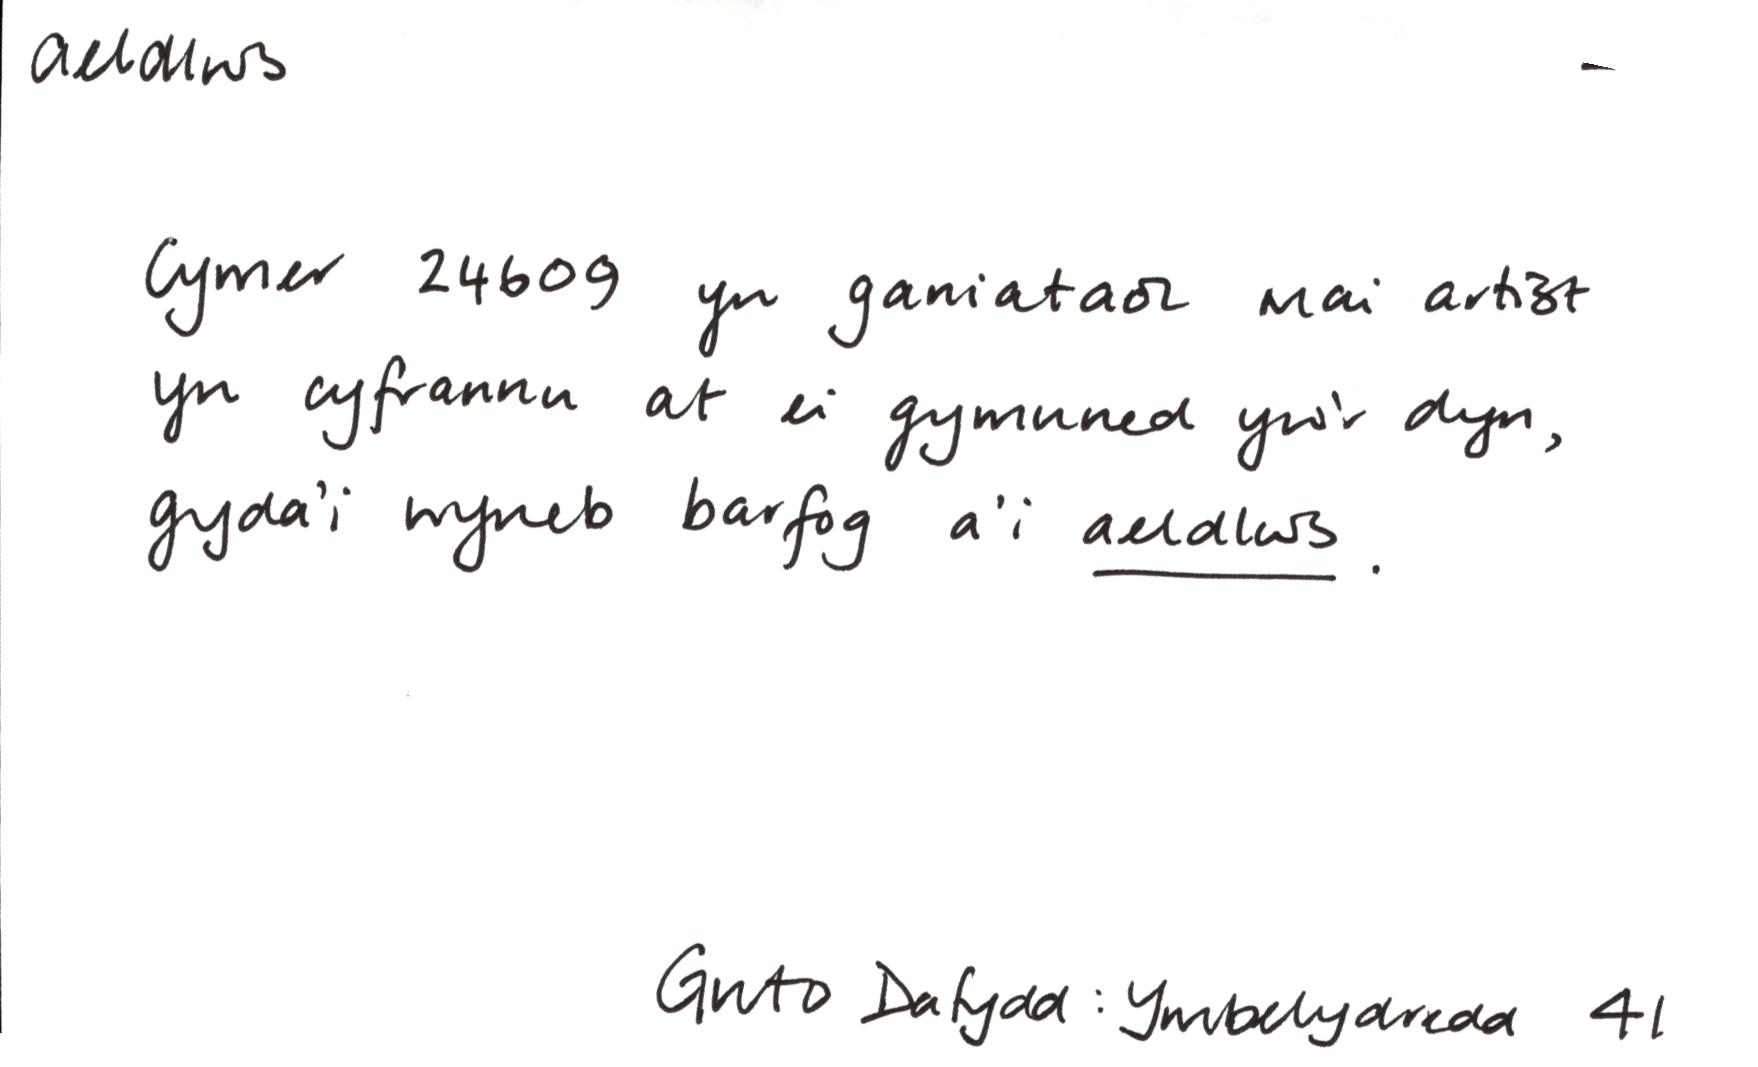 aeldlws –
Cymer 24609 yn ganiataol mai artist
yn cyfrannu at ei gymuned yw'r dyn,
gyda'i wyneb barfog a'i aeldlws.
Guto Dafydd: Ymbelydredd 41